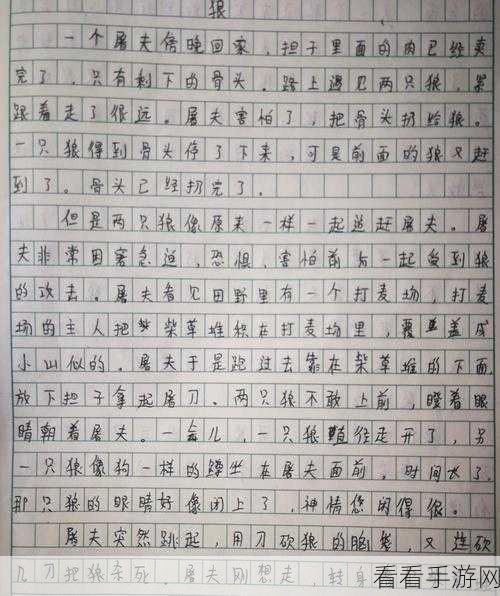 狼
一个屠夫傍晚回家，担子里面的肉已经卖
完了，只有剩下的骨头。路上遇见两只狼，紧
跟着走了很远。屠夫害怕了，把骨头扔给狼。
一只狼得到骨头停了下来，可是前面的狼又赶
到了。骨头已经扔完了。
但是两只狼像原来一样一起追赶屠夫。屠
夫非常困窘急迫，恐惧，害怕前后一起受到狼
的攻击。屠夫看见田野里有一个打麦场，打麦
场的主人把柴草堆积在打麦场里，覆盖成
小山似的。屠夫于是跑过去靠在柴草堆的下面，
放下担子拿起屠刀。两只狼不敢上前，瞪着眼
睛朝着屠夫。一会儿，一只狼径走开了，另
一只狼像狗一样的蹲坐在屠夫面前。时间长了，
那只狼的眼睛好像闭上了，神情悠闲得很。
屠夫突然跳起，用刀砍狼的脑袋，又连砍
几刀把狼杀死。屠夫刚想走，转身
看看手游网